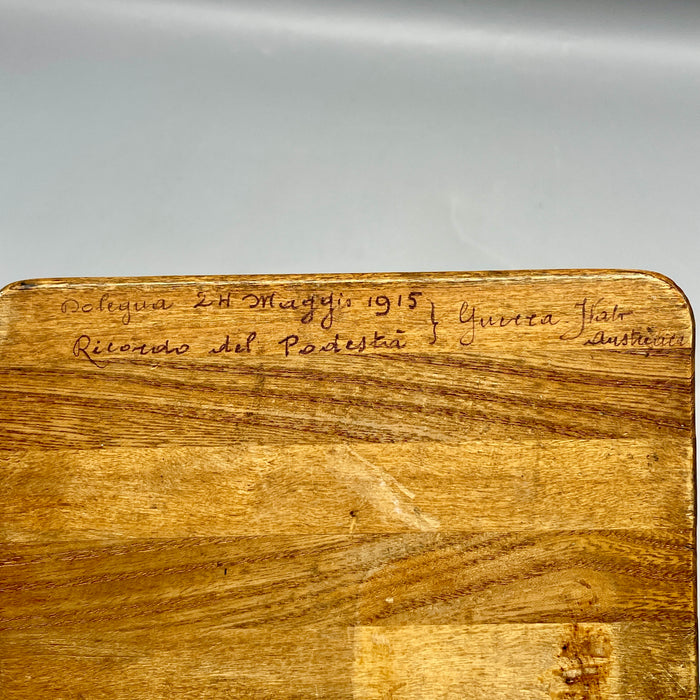 Dolegna 24 Maggio 1915 } Guerra Italo
Ricordo del Podestà } Austriaca